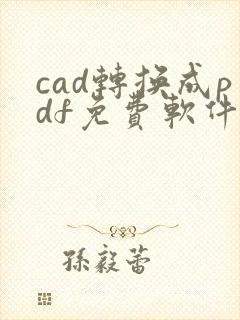 cad轉換成p
df免費軟件
孫毅蕾